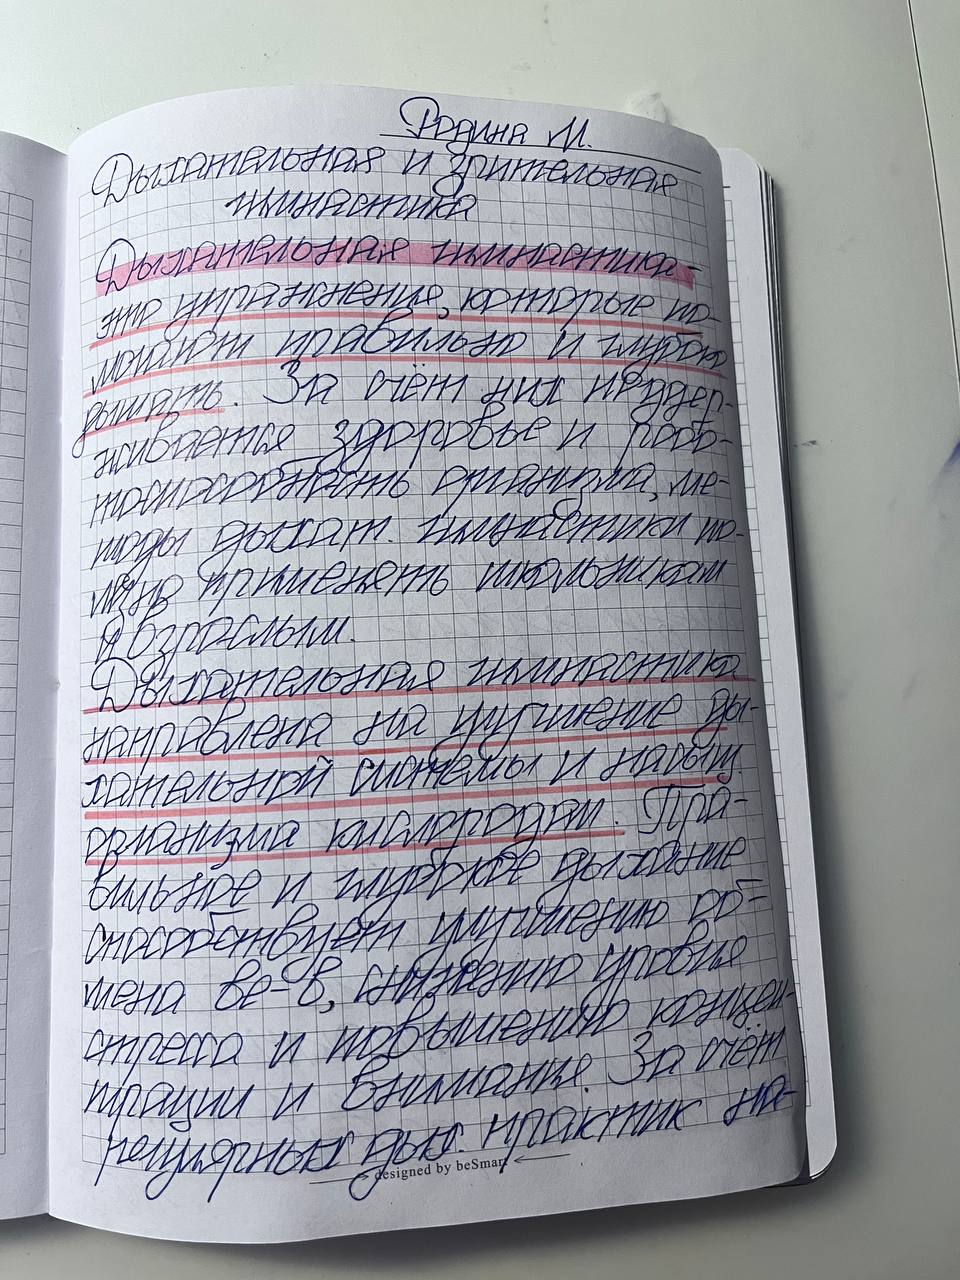 Родина М.
Дыхательная и зрительная
гимнастика
Дыхательная гимнастика -
это упражнения, которые по-
могают правильно и глубоко
дышать. За счёт них поддер-
живается здоровье и рабо-
тоспособность организма, ме-
тоды дыхат. гимнастики по-
лезно применять школьникам
и взрослым.
Дыхательная гимнастика
направлена на улучшение ды-
хательной системы и насыщ.
организма кислородом. Пра-
вильное и глубокое дыхание
способствует улучшению об-
мена ве-в, снижению уровня
стресса и повышению концен-
трации и внимания. За счёт
регулярных дых. практик на-
designed by beSmart